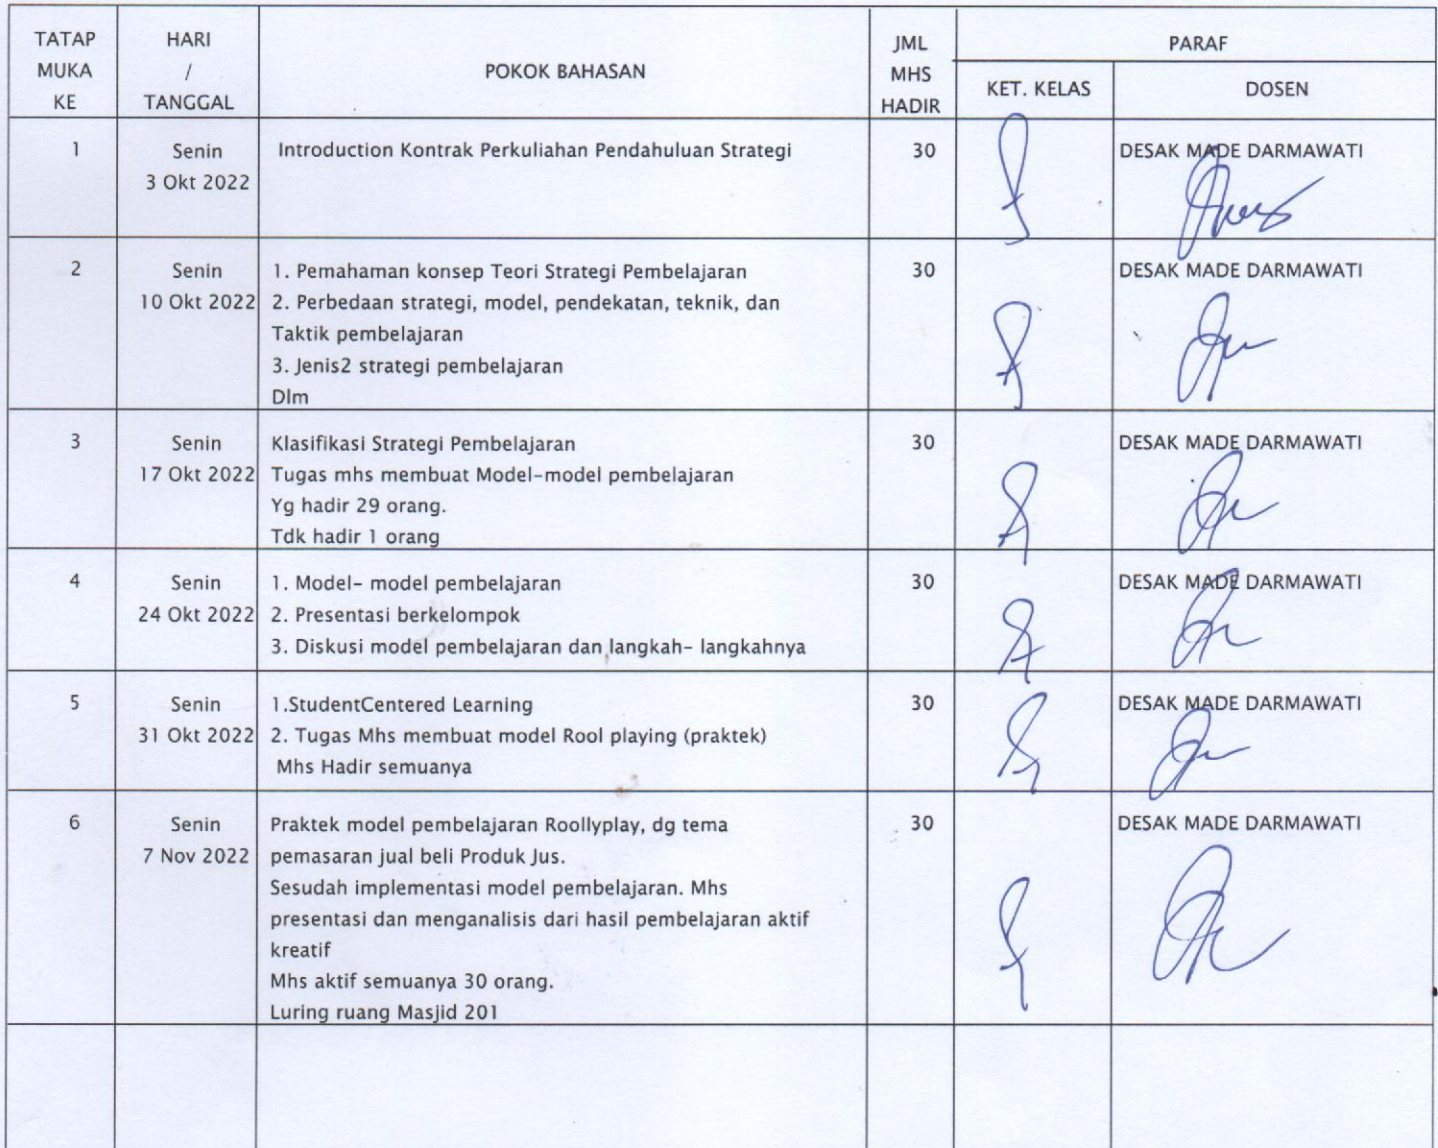 TATAP MUKA KE
HARI / TANGGAL
POKOK BAHASAN
JML MHS HADIR
PARAF
KET. KELAS
DOSEN
1
Senin
3 Okt 2022
Introduction Kontrak Perkuliahan Pendahuluan Strategi
30
DESAK MADE DARMAWATI
2
Senin
10 Okt 2022
1. Pemahaman konsep Teori Strategi Pembelajaran
2. Perbedaan strategi, model, pendekatan, teknik, dan
Taktik pembelajaran
3. Jenis2 strategi pembelajaran
Dlm
30
DESAK MADE DARMAWATI
3
Senin
17 Okt 2022
Klasifikasi Strategi Pembelajaran
Tugas mhs membuat Model-model pembelajaran
Yg hadir 29 orang.
Tdk hadir 1 orang
30
DESAK MADE DARMAWATI
4
Senin
24 Okt 2022
1. Model- model pembelajaran
2. Presentasi berkelompok
3. Diskusi model pembelajaran dan langkah- langkahnya
30
DESAK MADE DARMAWATI
5
Senin
31 Okt 2022
1.StudentCentered Learning
2. Tugas Mhs membuat model Rool playing (praktek)
Mhs Hadir semuanya
30
DESAK MADE DARMAWATI
6
Senin
7 Nov 2022
Praktek model pembelajaran Roollyplay, dg tema
pemasaran jual beli Produk Jus.
Sesudah implementasi model pembelajaran. Mhs
presentasi dan menganalisis dari hasil pembelajaran aktif
kreatif
Mhs aktif semuanya 30 orang.
Luring ruang Masjid 201
30
DESAK MADE DARMAWATI